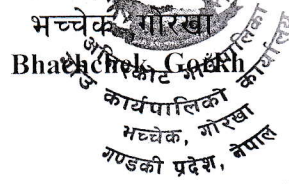 भच्चेक, गोरखा
Bhachchek, Gorkh
अजिरकोट गाउँपालिका
गाउँ कार्यपालिकाको कार्यालय
भच्चेक, गोरखा
गण्डकी प्रदेश, नेपाल